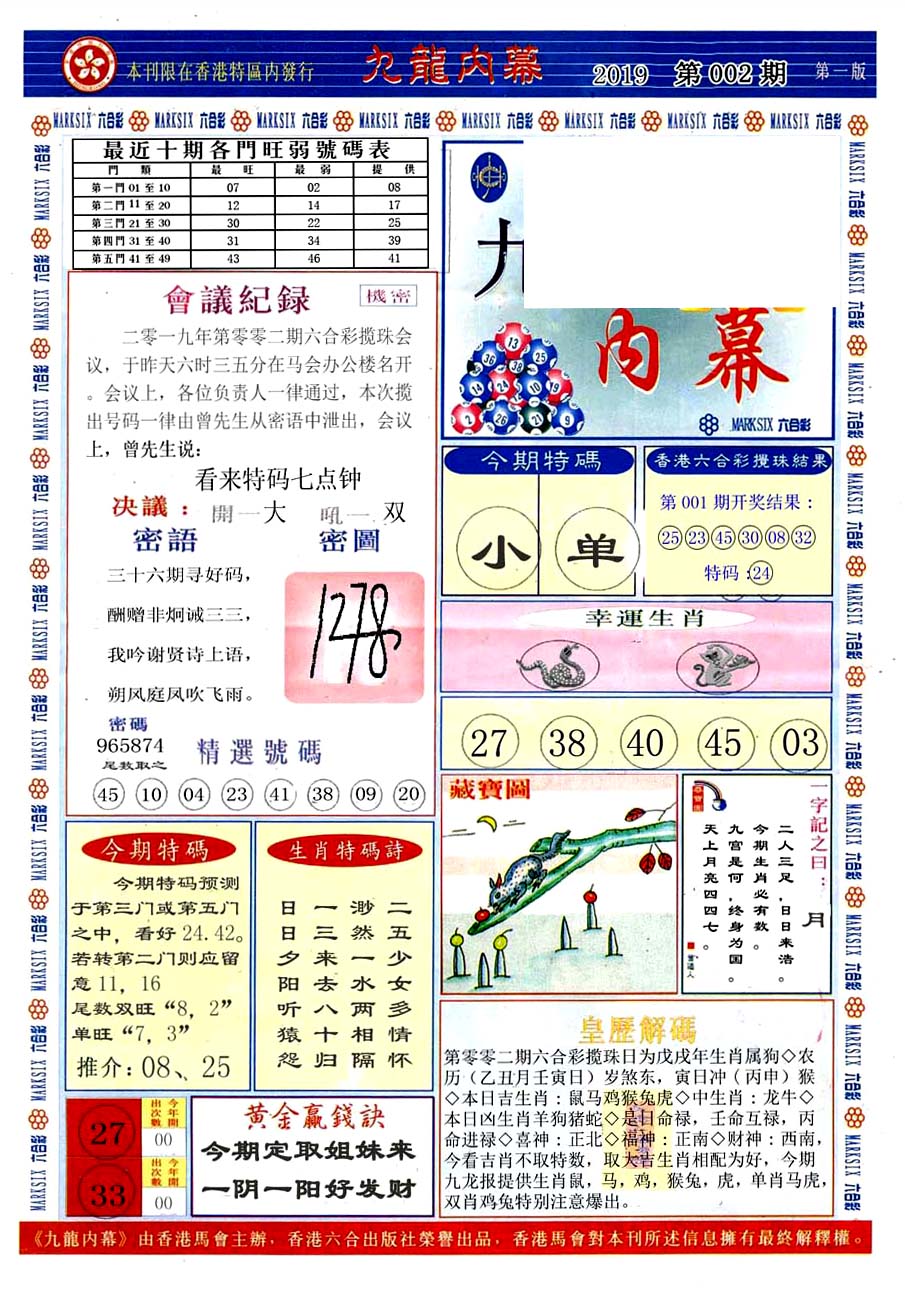 本刊限在香港特區内發行 九龍内幕 2019 第002期 第一版
MARKSIX 六合彩 MARKSIX 六合彩 MARKSIX 六合彩 MARKSIX 六合彩 MARKSIX 六合彩 MARKSIX 六合彩 MARKSIX 六合彩 MARKSIX 六合彩
最近十期各門旺弱號碼表
門 類 最 旺 最 弱 提 供
第一門 01 至 10 07 02 08
第二門 11 至 20 12 14 17
第三門 21 至 30 30 22 25
第四門 31 至 40 31 34 39
第五門 41 至 49 43 46 41
會議紀録 機密
二零一九年第零零二期六合彩揽珠会
议，于昨天六时三五分在马会办公楼名开
。会议上，各位负责人一律通过，本次揽
出号码一律由曾先生从密语中泄出，会议
上，曾先生说：
看来特码七点钟
决議：開一大 吼一双
密語 密圖
三十六期寻好码，
酬赠非炯诚三三，
我吟谢贤诗上语，
朔风庭凤吹飞雨。
1278
密碼
965874
尾数取之
精選號碼
45 10 04 23 41 38 09 20
今期特碼
今期特码预测
于第三门或第五门
之中，看好24.42。
若转第二门则应留
意11，16
尾数双旺“8，2”
单旺“7，3”
推介：08、25
生肖特碼詩
二五少女多情怀
渺然一水两相隔
一三来去八十归
日日夕阳听猿怨
27 出次數 今年開 00
33 出次數 今年開 00
黄金赢錢訣
今期定取姐妹来
一阴一阳好发财
内幕
13
36 25
38
14 24 10 19
2 26 21 9
MARKSIX 六合彩
今期特碼
小 单
香港六合彩攪珠結果
第001期开奖结果：
25 23 45 30 08 32
特码：24
幸運生肖
27 38 40 45 03
藏寶圖
一字記之曰：月
二人三足，日日来浩。
今期生肖必有数。
九宫是何，终身为国。
天上月亮四四七。
皇歷解碼
第零零二期六合彩揽珠日为戊戌年生肖属狗◇农
历（乙丑月壬寅日）岁煞东，寅日冲（丙申）猴
◇本日吉生肖：鼠马鸡猴兔虎◇中生肖：龙牛◇
本日凶生肖羊狗猪蛇◇是日命禄，壬命互禄，丙
命进禄◇喜神：正北◇福神：正南◇财神：西南，
今看吉肖不取特数，取大吉生肖相配为好，今期
九龙报提供生肖鼠，马，鸡，猴兔，虎，单肖马虎，
双肖鸡兔特别注意爆出。
《九龍内幕》由香港馬會主辦，香港六合出版社榮譽出品，香港馬會對本刊所述信息擁有最終解釋權。